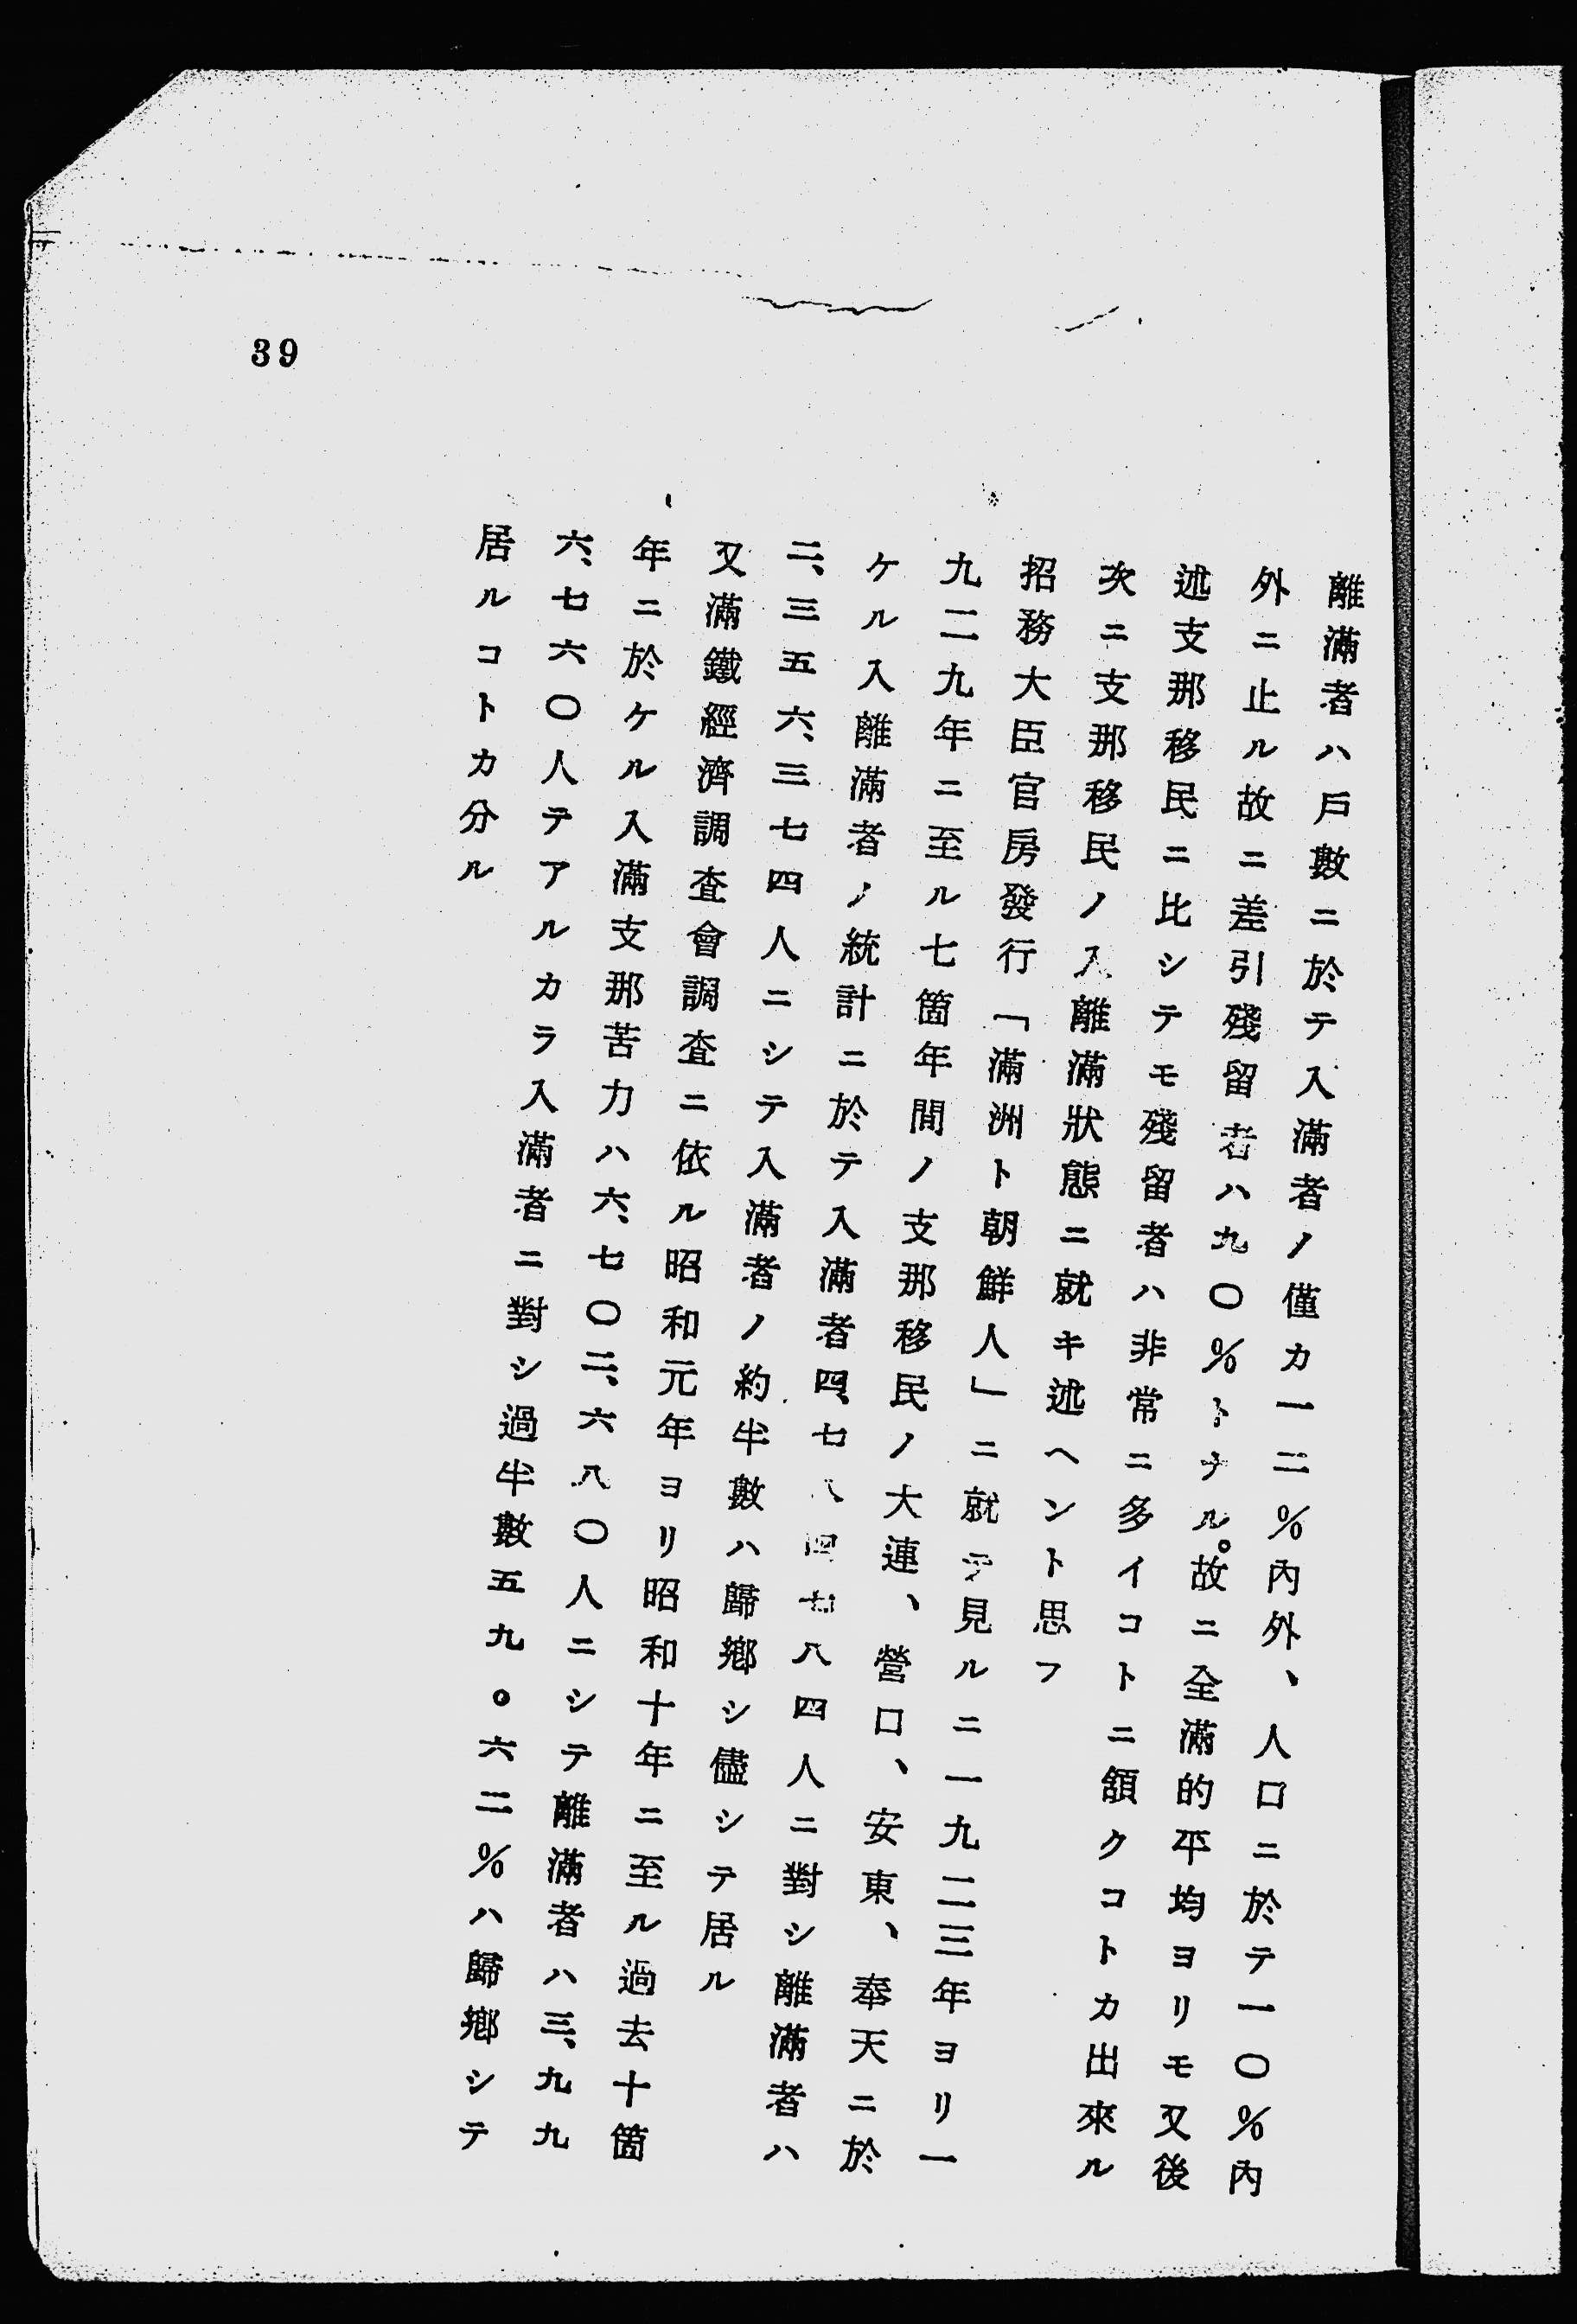 離滿者ハ戶數ニ於テ入滿者ノ僅カ一二%內外、人口ニ於テ一〇%內
外ニ止ル故ニ差引殘留者ハ九〇%トナル。故ニ全滿的平均ヨリモ又後
述支那移民ニ比シテモ殘留者ハ非常ニ多イコトニ額クコトカ出來ル
次ニ支那移民ノ入離滿狀態ニ就キ述ヘント思フ
招務大臣官房發行「滿洲ト朝鮮人」ニ就テ見ルニ一九二三年ヨリ一
九二九年ニ至ル七箇年間ノ支那移民ノ大連、營口、安東、奉天ニ於
ケル入離滿者ノ統計ニ於テ入滿者四、七八四七八四人ニ對シ離滿者ハ
二、三五六、三七四人ニシテ入滿者ノ約半數ハ歸鄕シ儘シテ居ル
又滿鐵經濟調査會調査ニ依ル昭和元年ヨリ昭和十年ニ至ル過去十箇
年ニ於ケル入滿支那苦力ハ六、七〇二、六八〇人ニシテ離滿者ハ三、九九
六、七六〇人テアルカラ入滿者ニ對シ過半數五九。六二%ハ歸鄕シテ
居ルコトカ分ル
39